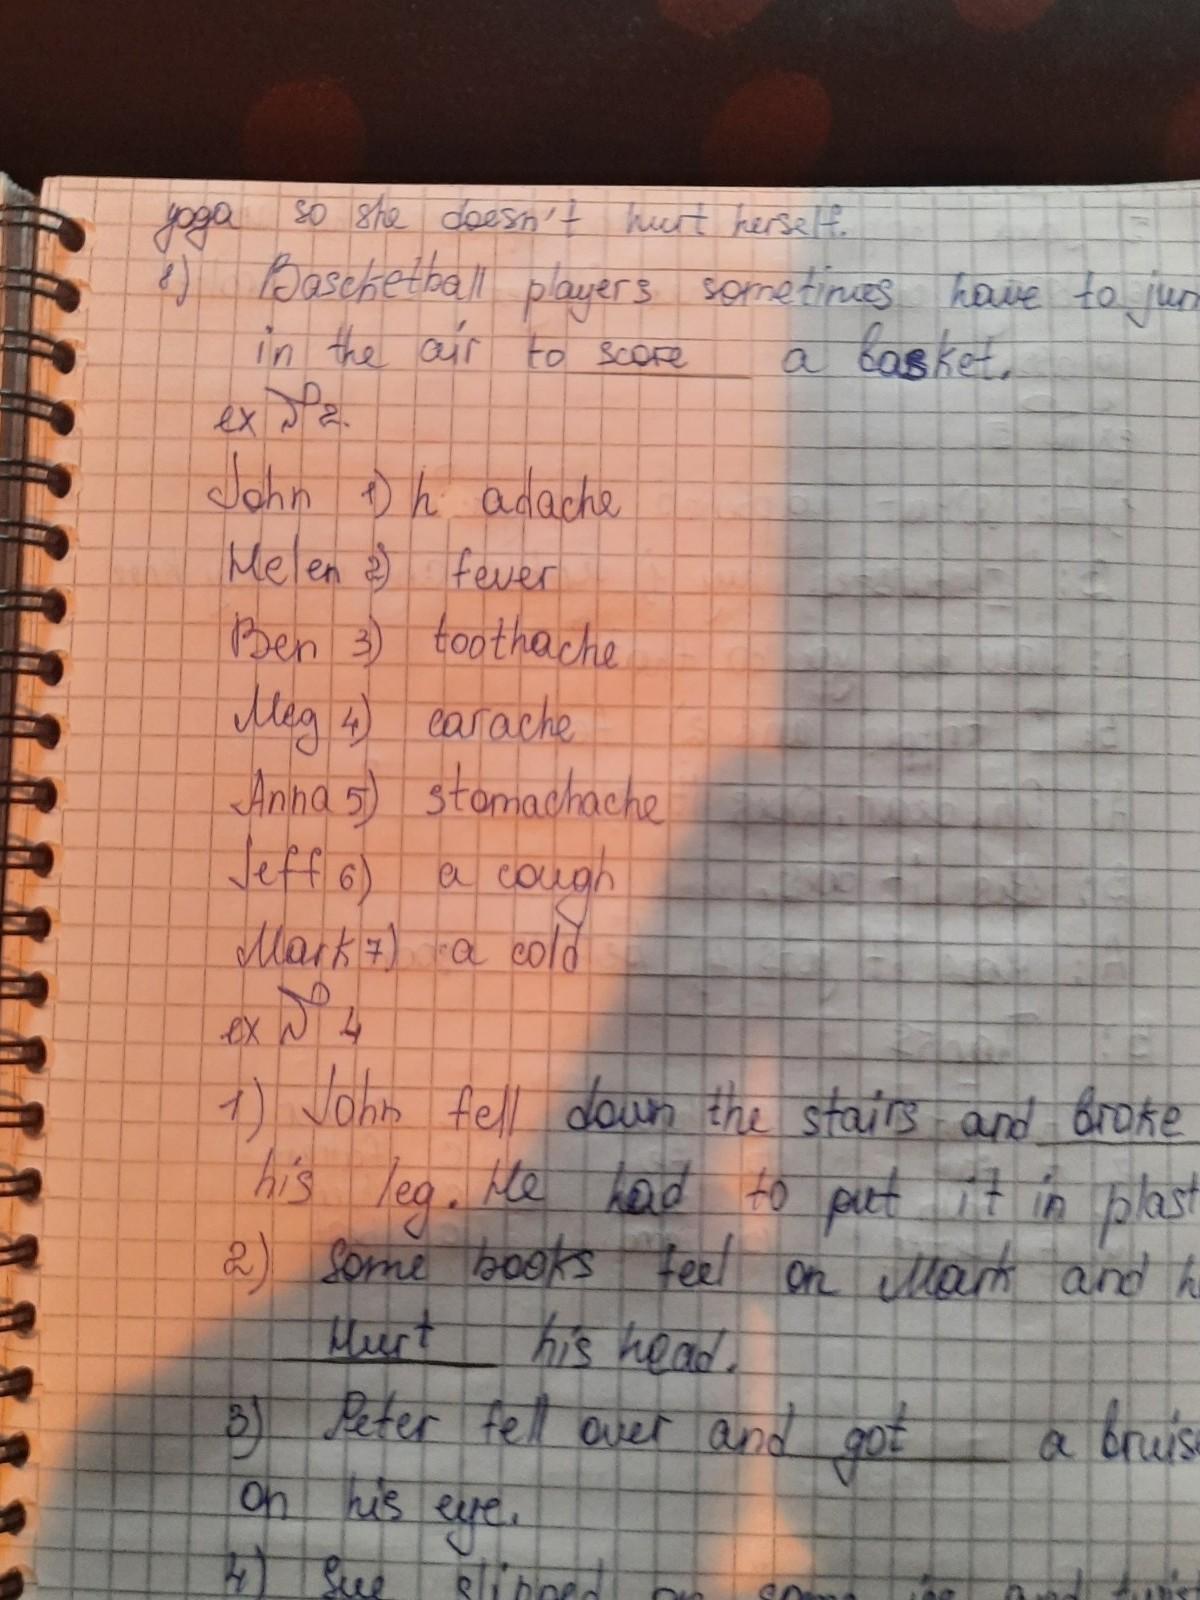 yoga so she doesn't hurt herself.
8) Baschetball players sometimes have to jum
in the air to score a basket.
ex № 2.
John 1) h adache
Helen 2) fever
Ben 3) toothache
Meg 4) earache
Anna 5) stomachache
Jeff 6) a cough
Mark 7) a cold
ex № 4
1) John fell down the stairs and broke
his leg. He had to put it in plast
2) Some books feel on Mark and h
Hurt his head.
3) Peter fell over and got a bruise
on his eye.
4) Sue slipped on some ice and twist